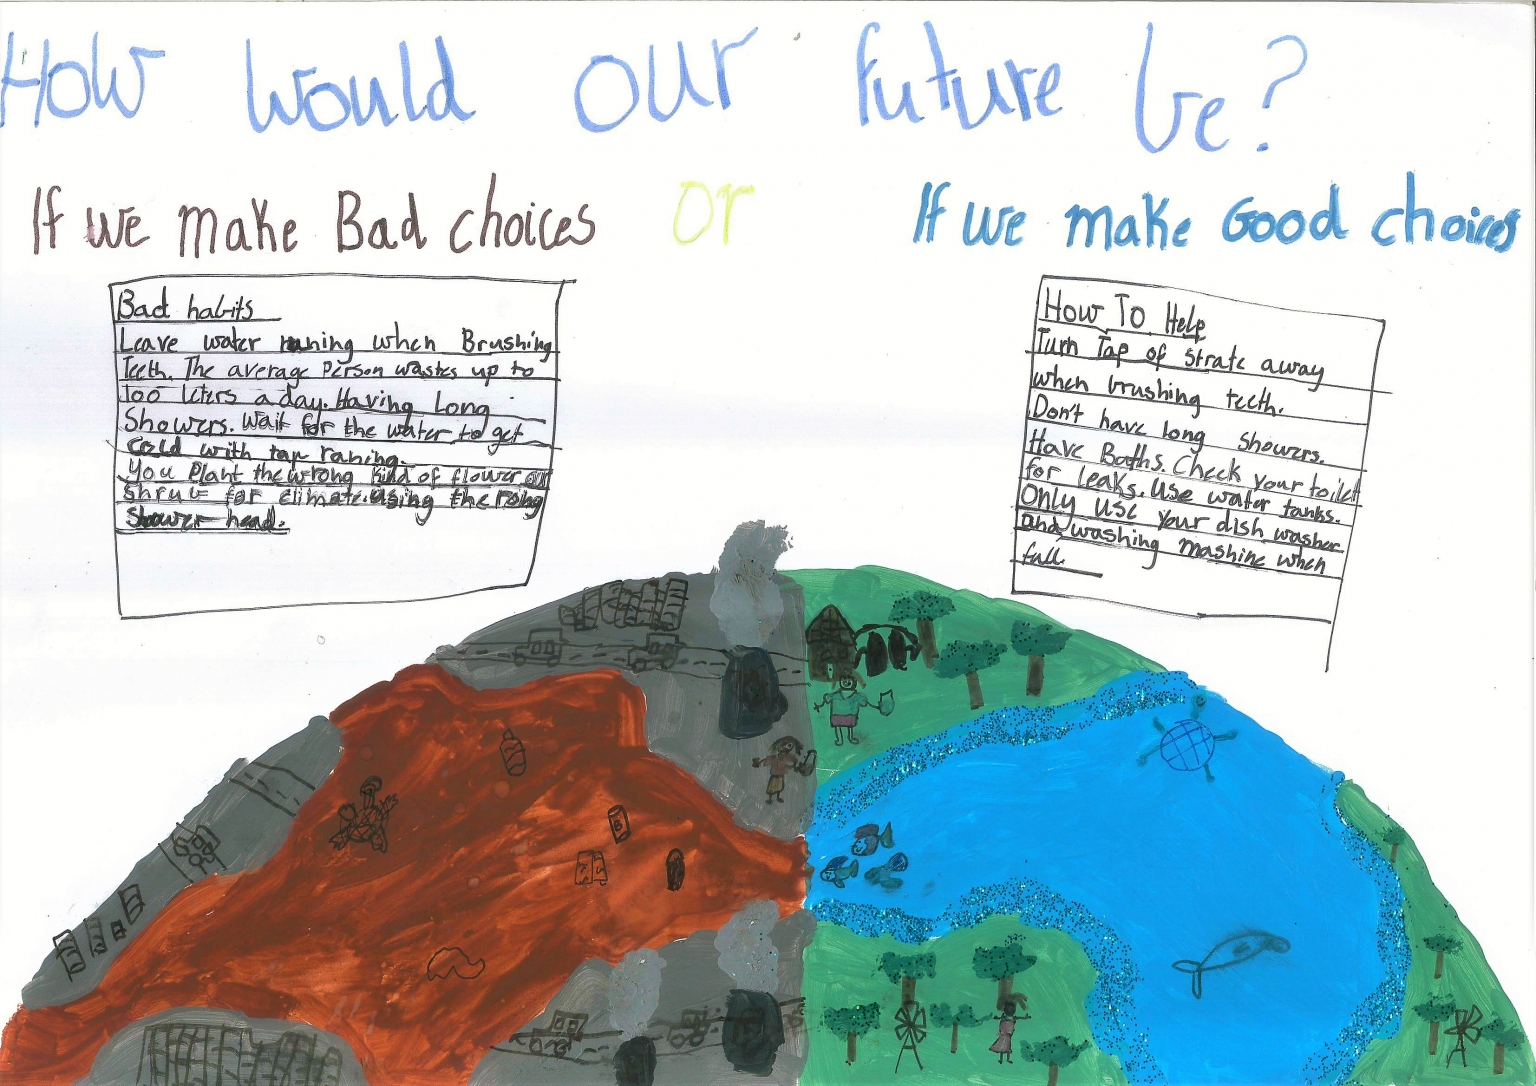 How would our future be?
If we make Bad choices
or
If we make Good choices
Bad habits
Leave water runing when Brushing
Teeth. The average Person wastes up to
100 leters a day. Having Long
Showers. wait for the water to get
cold with tap raning.
You Plant the wrong kind of flower or
shrub for climate. using the rong
Shower head.
How To Help
Turn Tap of strate away
when brushing teeth.
Don't have long showers.
Have Baths. Check your toilet
for leaks. Use water tanks.
Only use your dish washer
and washing mashine when
full.